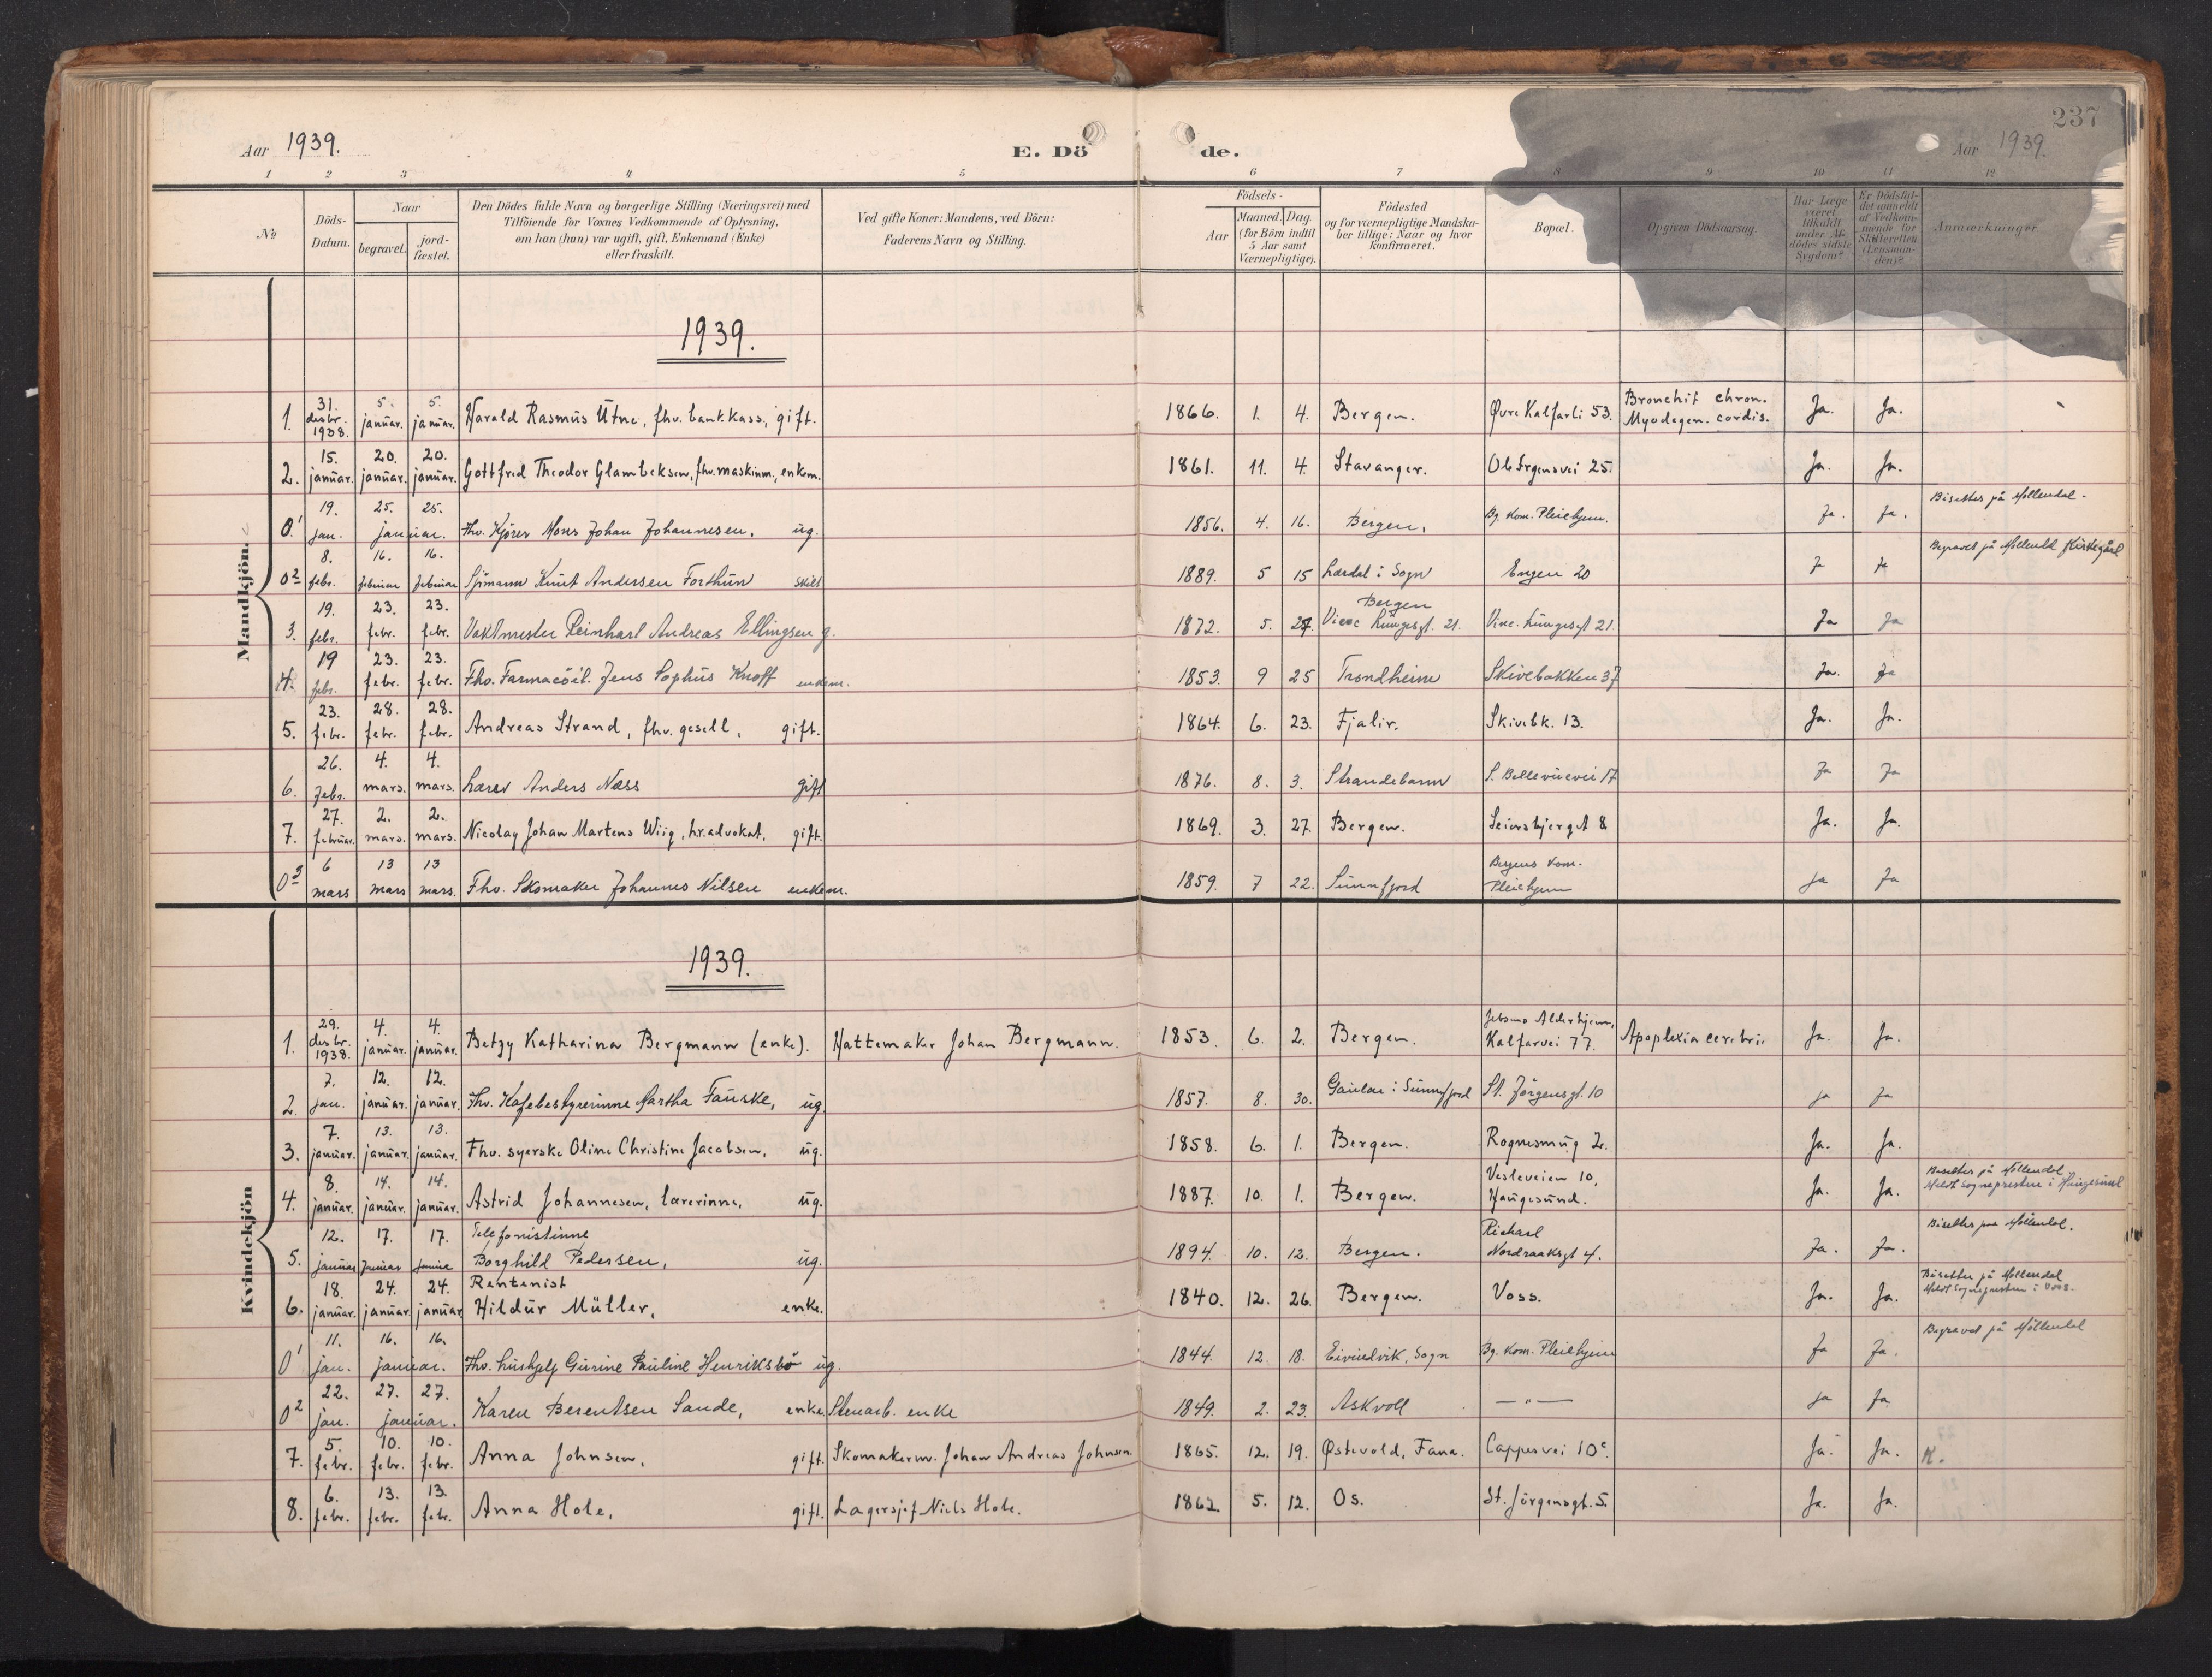 237
Aar 1939.
E. Dö de.
Aar 1939.
1 2 3 4 5 6 7 8 9 10 11 12
No
Döds-Datum.
Naar
begravet.
jord-fæstet.
Den Dödes fulde Navn og borgerlige Stilling (Næringsvei) med
Tilföiende for Voxnes Vedkommende af Oplysning,
om han (hun) var ugift, gift, Enkemand (Enke)
eller fraskilt.
Ved gifte Koner: Mandens, ved Börn:
Faderens Navn og Stilling.
Födsels-
Aar
Maaned. Dag.
(for Börn indtil
5 Aar samt
Værnepligtige).
Födested
og for værnepligtige Mandska-
ber tillige: Naar og hvor
konfirmeret.
Bopæl.
Opgiven Dödsaarsag.
Har Læge
været
tilkaldt
under Af-
dödes sidste
Sygdom?
Er Dödsfal-
det anmeldt
af Vedkom-
mende for
Skifteretten
(Lensman-
den)?
Anmærkninger.
Mandkjön.
1939.
1. 31. desbr. 1938. 5. januar. 5. januar. Harald Rasmus Utne, fhv. bank.kass, gift. 1866. 1. 4. Bergen. Øvre Kalfarli 53. Bronchit chron. Myodegen. cordis. Ja. Ja.
2. 15. januar. 20. januar. 20. januar. Gottfred Theodor Glambeksen, fhv. maskinm., enkem. 1861. 11. 4. Stavanger. Ole Irgensvei 25. Ja. Ja.
0¹ 19. jan. 25. 25. januar. Fhv. Kjører Mons Johan Johannesen, ug. 1856. 4. 16. Bergen. Bg. Kom. Pleiehjem. Ja. Ja. Bisettes på Møllendal.
0² 8. febr. 16. februar 16. februar Sjømann Knut Andersen Forthun skilt 1889. 5 15 Lærdal i Sogn Engen 20 Ja Ja Begravet på Møllendal Kirkegård
3. 19. febr. 23. febr. 23. febr. Vaktmester Reinhart Andreas Ellingsen g. 1872. 5. 27. Bergen Vicec Lungegt. 21. Vinc. Lungesgt 21. Ja Ja
4. 19 febr. 23. febr. 23. febr. Fhv. Farmacöit. Jens Sophus Knoff enkem. 1853. 9 25 Trondheim Skivebakken 37 Ja. Ja
5. 23. febr. 28. febr. 28. febr. Andreas Strand, fhv. gesell, gift. 1864. 6. 23. Fjalir. Skivebk. 13. Ja. Ja.
6. 26. febr. 4. mars. 4. mars. Lærer Anders Næss gift 1876. 8. 3. Strandebarm S. Bellevuevei 17 Ja Ja
7. 27. februar. 2. mars. 2. mars. Nicolay Johan Martens Wiig, hr.advokat, gift. 1869. 3. 27. Bergen. Seiersbjerget 8 Ja. Ja.
0³ 6 mars 13 mars 13 mars. Fhv. Skomaker Johannes Nilsen enkem. 1859. 7 22. Sunnfjord Bergens Kom. Pleiehjem Ja Ja
Kvindekjön
1939.
1. 29. desbr. 1938. 4. januar. 4. januar. Betzy Katharina Bergmann (enke). Hattemaker Johan Bergmann. 1853. 6. 2. Bergen. Jebsens Alderhjem, Kalfarvei 77. Apoplexia cerebri. Ja. Ja.
2. 7. jan. 12. januar. 12. januar. Fhv. Kafebestyrerinne Martha Fauske, ug. 1857. 8. 30. Gaular i Sunnfjord St. Jørgensgt. 10 Ja Ja
3. 7. januar. 13. januar. 13. januar. Fhv. syerske Oline Christine Jacobsen, ug. 1858. 6. 1. Bergen. Rognesmug 2. Ja. Ja.
4. 8. januar. 14. januar. 14. januar. Astrid Johannesen, lærerinne, ug. 1887. 10. 1. Bergen. Vesleveien 10, Haugesund. Ja. Ja. Bisettes på Møllendal Meldt sognepresten i Haugesund
5. 12. januar 17. januar 17. januar Telefonistinne Borghild Pedersen, ug. 1894. 10. 12. Bergen. Richard Nordraaksgt 4. Ja. Ja. Bisettes paa Møllendal.
6. 18. januar. 24. januar. 24. januar Rentenist Hildur Müller, enke. 1840. 12. 26. Bergen. Voss. Ja. Ja. Bisettes på Møllendal Meldt sognepresten i Voss.
0¹ 11. jan. 16. 16. januar. Fhv. hushjelp Gurine Pauline Henriksbø ug. 1844. 12. 18. Eivindvik, Sogn Bg. Kom. Pleiehjem Ja Ja. Begravet på Møllendal
0² 22. jan. 27. 27. januar. Karen Berentsen Sande, enke. Stenarb. enke 1849. 2. 23. Askvoll —"— Ja Ja
7. 5. febr. 10. febr. 10. febr. Anna Johnsen, gift. Skomakerm. Johan Andreas Johnsen. 1865. 12. 19. Østevold, Fana. Cappesvei 10c. Ja. Ja. K.
8. 6. febr. 13. febr. 13. febr. Anna Hole, gift. Lagersjef Niels Hole. 1862. 5. 12. Os. St. Jørgensgt. 5. Ja. Ja.